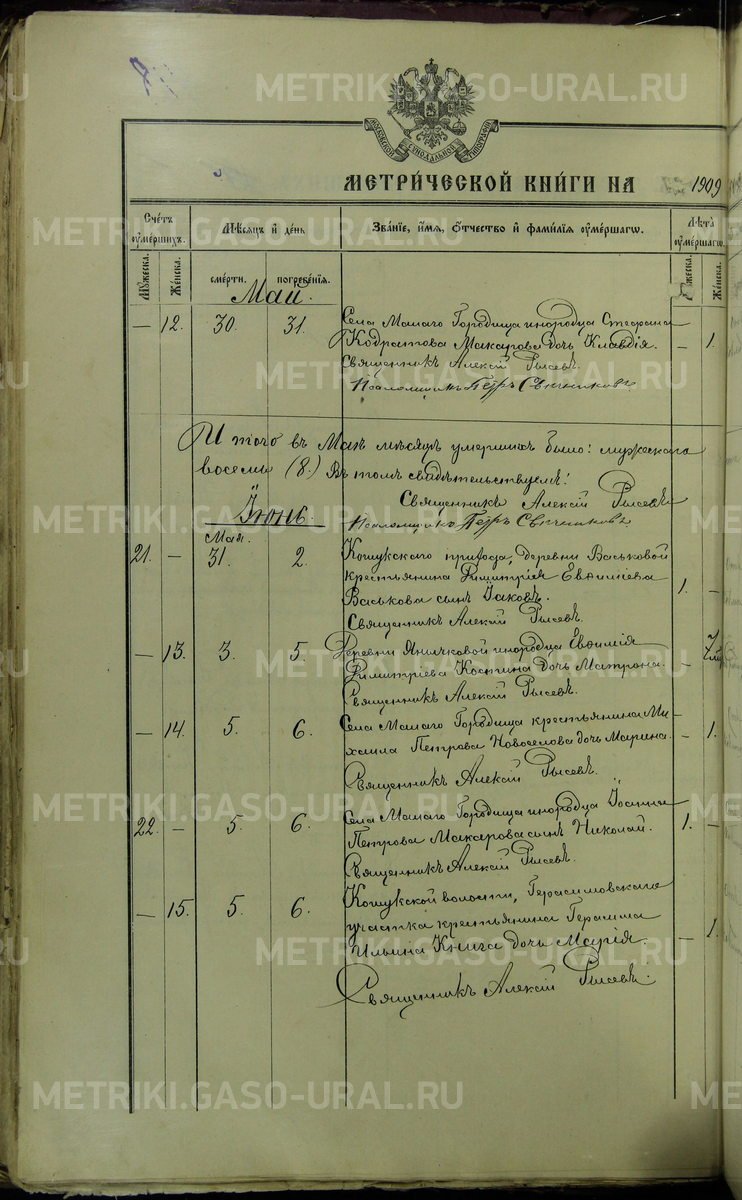 МОСКОВСКОЙ СУНОДАЛЬНОЙ ТИПОГРАФІИ
МЕТРИ́ЧЕСКОЙ КНИ́ГИ НА 1909
Счетъ ѹмершихъ.
Мѣсяцъ и день
Званіе, имя, отчество и фамилія ѹмершагѡ.
Лѣта ѹмершагѡ.
Мужеска.
Женска.
смерти.
погребенія.
Мужеска.
Женска.
Май.
— 12. 30. 31. Села Малаго Городища инородца Стефана
Кодратова Макарова дочь Клавдія. — 1.
Священникъ Алексій Рысевъ.
Псаломщикъ Петръ Свѣчниковъ
Итого въ Маѣ мѣсяцѣ умершихъ было: мужескаго
восемь (8.) Въ томъ свидѣтельствуемъ:
Священникъ Алексій Рысевъ
Іюнь.
Псаломщикъ Петръ Свѣчниковъ
Мая.
21. — 31. 2. Кошукскаго прихода, деревни Васьковой
крестьянина Димитрія Евѳиміева 1. —
Васькова сынъ Іаковъ.
Священникъ Алексій Рысевъ.
— 13. 3. 5. Деревни Яничковой инородца Евѳимія 7
Димитріева Костина дочь Матрона. —
Священникъ Алексій Рысевъ.
— 14. 5. 6. Села Малаго Городища крестьянина Ми-
хаила Петрова Новоселова дочь Марина. — 1.
Священникъ Алексій Рысевъ.
22. — 5. 6. Села Малаго Городища инородца Іоанна
Петрова Макарова сынъ Николай. 1. —
Священникъ Алексій Рысевъ.
— 15. 5. 6. Кошукской волости, Герасимовскаго
участка крестьянина Герасима
Ильина Книга дочь Марія. — 1.
Священникъ Алексій Рысевъ.
METRIKI.GASO-URAL.RU